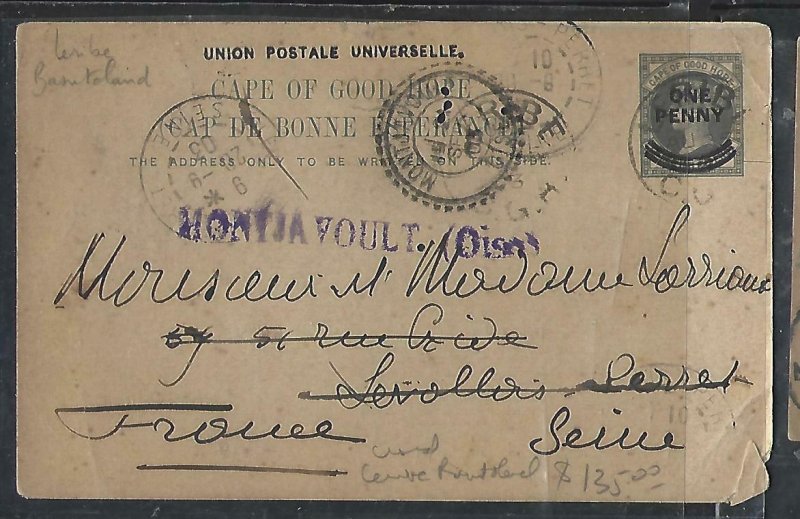 Leribe
Basutoland
UNION POSTALE UNIVERSELLE.
CAPE OF GOOD HOPE
CAP DE BONNE ESPERANCE
THE ADDRESS ONLY TO BE WRITTEN ON THIS SIDE.
CAPE OF GOOD HOPE
ONE
PENNY
PERRET
SEINE
MONTJAVOULT (Oise)
Monsieur et Madame Lorriaux
51 rue Gide
Levallois Perret
France
Seine
used
Leribe Basutoland $135.00